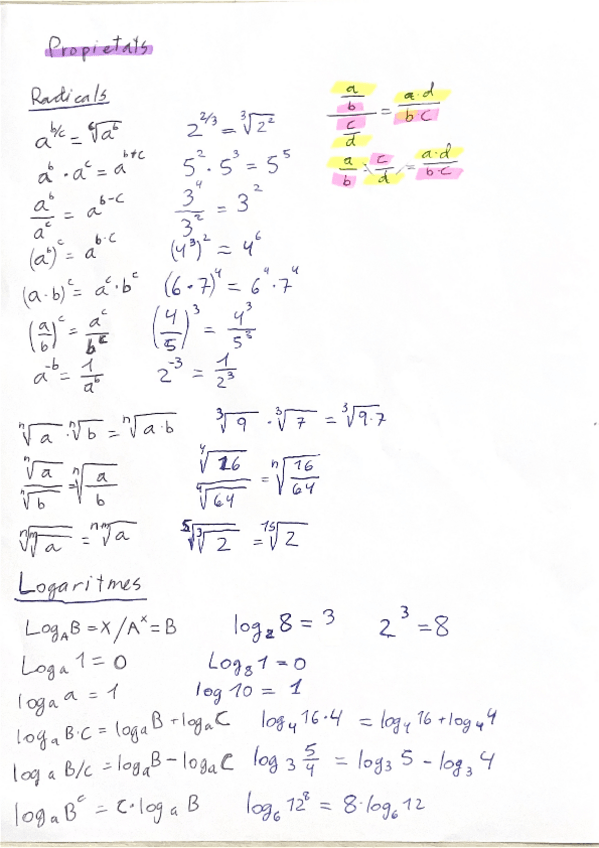 Propietats
Radicals
a^{b/c} = \sqrt[c]{a^b}    2^{2/3} = \sqrt[3]{2^2}
a^b · a^c = a^{b+c}    5^2 · 5^3 = 5^5
\frac{a^b}{a^c} = a^{b-c}    \frac{3^4}{3^2} = 3^2
(a^b)^c = a^{b·c}    (4^3)^2 = 4^6
(a·b)^c = a^c · b^c    (6·7)^4 = 6^4 · 7^4
(\frac{a}{b})^c = \frac{a^c}{b^c}    (\frac{4}{5})^3 = \frac{4^3}{5^3}
a^{-b} = \frac{1}{a^b}    2^{-3} = \frac{1}{2^3}
\frac{\frac{a}{b}}{\frac{c}{d}} = \frac{a·d}{b·c}
\frac{a}{b} : \frac{c}{d} = \frac{a·d}{b·c}
\sqrt[n]{a} · \sqrt[n]{b} = \sqrt[n]{a·b}    \sqrt[3]{9} · \sqrt[3]{7} = \sqrt[3]{9·7}
\frac{\sqrt[n]{a}}{\sqrt[n]{b}} = \sqrt[n]{\frac{a}{b}}    \frac{\sqrt[4]{16}}{\sqrt[4]{64}} = \sqrt[n]{\frac{16}{64}}
\sqrt[n]{\sqrt[m]{a}} = \sqrt[n·m]{a}    \sqrt[5]{\sqrt[3]{2}} = \sqrt[15]{2}
Logaritmes
Log_A B = X / A^x = B    log_2 8 = 3    2^3 = 8
Log_a 1 = 0    Log_8 1 = 0
log_a a = 1    log 10 = 1
log_a B·C = log_a B + log_a C    log_4 16·4 = log_4 16 + log_4 4
log_a B/c = log_a B - log_a C    log_3 \frac{5}{4} = log_3 5 - log_3 4
log_a B^c = C · log_a B    log_6 12^8 = 8·log_6 12